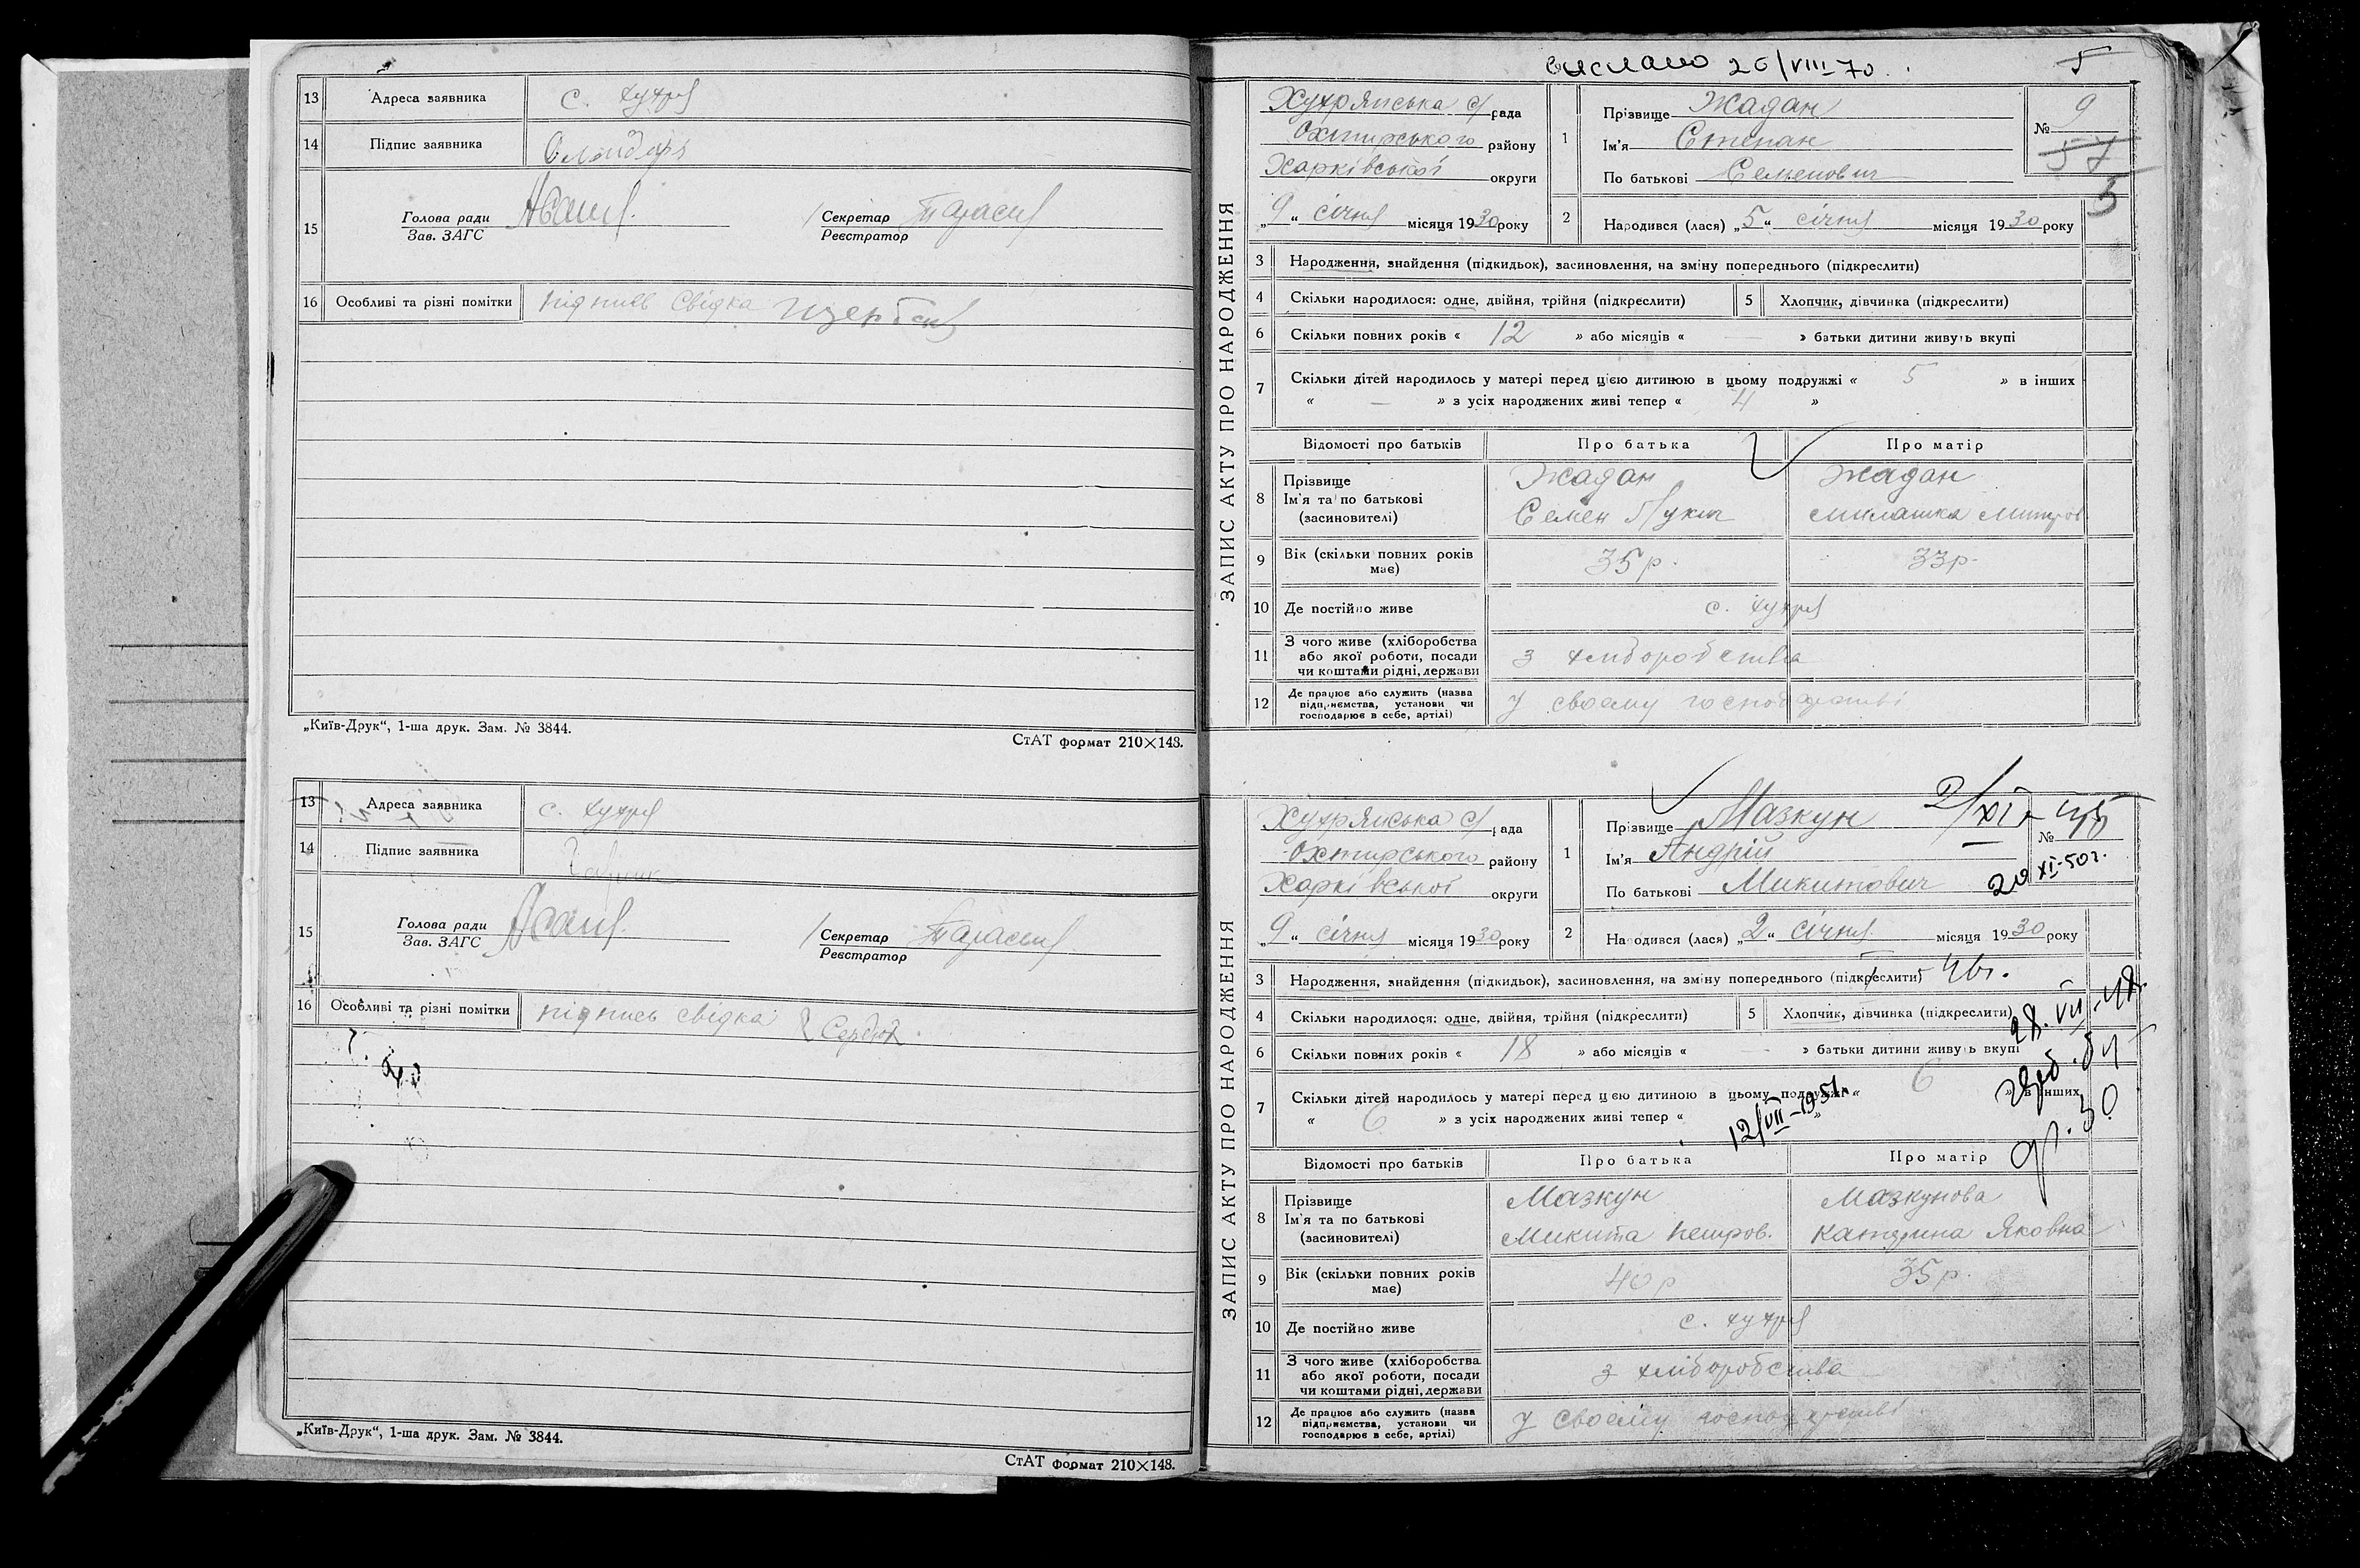 13 Адреса заявника с. Хухря
14 Підпис заявника
15 Голова ради
Зав. ЗАГС
Секретар
Реєстратор
16 Особливі та різні помітки підпись свідка
„Київ-Друк“, 1-ша друк. Зам. № 3844.
СтАТ формат 210×148.
13 Адреса заявника с. Хухря
14 Підпис заявника
15 Голова ради
Зав. ЗАГС
Секретар
Реєстратор
16 Особливі та різні помітки підпись свідка
„Київ-Друк“, 1-ша друк. Зам. № 3844.
СтАТ формат 210×148.
выслано 26/VIII-70. 5
ЗАПИС АКТУ ПРО НАРОДЖЕННЯ
Хухрянська с/рада
Охтирського району
Харківської округи
„9“ січня місяця 1930 року
1 Прізвище Жадан
Ім'я Степан
По батькові Семенович
№ 9
57
5
2 Народився (лася) „5“ січня місяця 1930 року
3 Народження, знайдення (підкидьок), засиновлення, на зміну попереднього (підкреслити)
4 Скільки народилося: одне, двійня, трійня (підкреслити) 5 Хлопчик, дівчинка (підкреслити)
6 Скільки повних років « 12 » або місяців « — » батьки дитини живуть вкупі
7 Скільки дітей народилось у матері перед цією дитиною в цьому подружжі « 5 » в інших
« — » з усіх народжених живі тепер « 4 »
Відомості про батьків Про батька Про матір
8 Прізвище Жадан Жадан
Ім'я та по батькові
(засиновителі) Семен Лукич Милашка
9 Вік (скільки повних років має) 35 р. 33 р.
10 Де постійно живе с. Хухря
11 З чого живе (хліборобства
або якої роботи, посади
чи коштами рідні, держави з хліборобства
12 Де працює або служить (назва
підприємства, установи чи
господарює в себе, артілі) у своєму господарстві
ЗАПИС АКТУ ПРО НАРОДЖЕННЯ
Хухрянська с/рада
Охтирського району
Харківської округи
„9“ січня місяця 1930 року
1 Прізвище Мазкун
Ім'я Андрій
По батькові Микитович
№
20 XI-50 г.
2 Народився (лася) „2“ січня місяця 1930 року
3 Народження, знайдення (підкидьок), засиновлення, на зміну попереднього (підкреслити)
4 Скільки народилося: одне, двійня, трійня (підкреслити) 5 Хлопчик, дівчинка (підкреслити)
28. VII
6 Скільки повних років « 18 » або місяців « — » батьки дитини живуть вкупі
7 Скільки дітей народилось у матері перед цією дитиною в цьому подружжі « 6 » в інших
« 6 » з усіх народжених живі тепер « »
12/VII-1951
Відомості про батьків Про батька Про матір
8 Прізвище Мазкун Мазкунова
Ім'я та по батькові
(засиновителі) Микита Петров. Катерина Яковна
9 Вік (скільки повних років має) 40 р 35 р.
10 Де постійно живе с. Хухря
11 З чого живе (хліборобства
або якої роботи, посади
чи коштами рідні, держави з хліборобства
12 Де працює або служить (назва
підприємства, установи чи
господарює в себе, артілі) у своєму господарстві